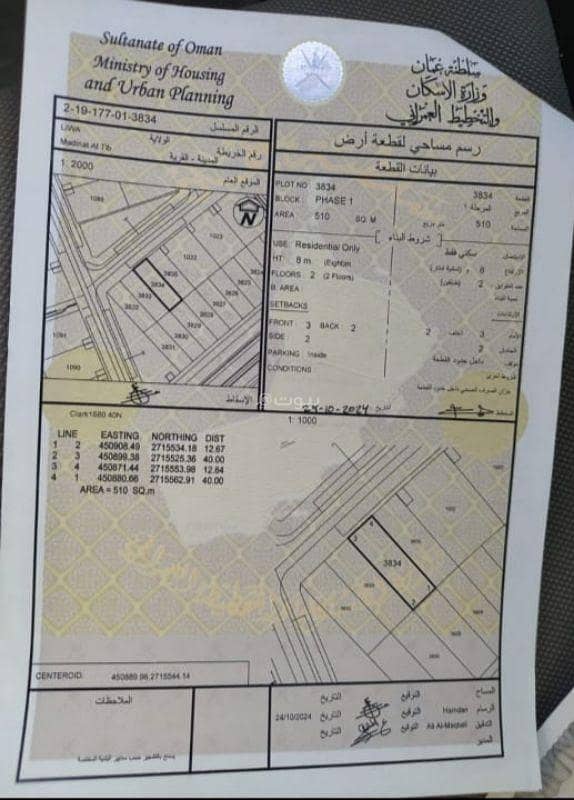 Sultanate of Oman
Ministry of Housing
and Urban Planning
سلطنة عمان
وزارة الإسكان
والتخطيط العمراني
2-19-177-01-3834 الرقم المسلسل
LIWA الولاية
Madinat Al Tib المدينة - القرية رقم الخريطة
1: 2000 الموقع العام
1089
1023
1022
3835
3834
3833
3832
3824
3825
3826
3827
3828
3829
3830
3831
1091
1090
N
الإسقاط
رسم مساحي لقطعة أرض
بيانات القطعة
PLOT NO : 3834
3834 القطعة
BLOCK : PHASE 1
المرحلة ١ المربع
AREA : 510 SQ. M
510 متر مربع المساحة
شروط البناء
USE: Residential Only
سكني فقط الاستعمال
HT 8 m (Eight)m
8 م الارتفاع
FLOORS 2 (2 Floors)
2 عدد الطوابق
B. AREA
نسبة البناء
SETBACKS
الارتدادات
FRONT 3 BACK 2
2 الخلف 3 الأمام
SIDE 2
2 الجانبي
PARKING Inside
داخل حدود القطعة موقف
CONDITIONS
شروط أخرى
خزان الصرف الصحي داخل حدود القطعة
24-10-2024 التاريخ
المخطط
بيوت
Clark1880 40N
1: 1000
LINE EASTING NORTHING DIST
1 2 450908.49 2715534.18 12.67
2 3 450899.38 2715525.36 40.00
3 4 450871.44 2715553.98 12.84
4 1 450880.66 2715562.91 40.00
AREA = 510 SQ.m
3834
CENTEROID. 450889.96,2715544.14
الملاحظات
المساح التوقيع التاريخ
الرسام Hamdan التوقيع التاريخ 24/10/2024
التدقيق Ali Al-Maqbali التوقيع التاريخ
المدير